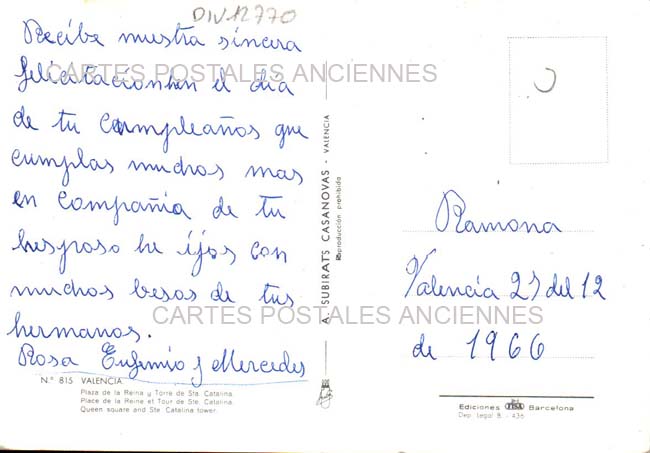 DIV12770
Recibe nustra sincera
felicitacionhen el dia
de tu cumpleaños que
cumplas muchos mas
en compañia de tu
hesposo he ijos con
muchos besos de tus
hermanos.
Rosa Eugenio y Mercedes
CARTES POSTALES ANCIENNES
CARTES POSTALES ANCIENNES
N.º 815 VALENCIA
Plaza de la Reina y Torre de Sta. Catalina.
Place de la Reine et Tour de Ste. Catalina.
Queen square and Ste. Catalina tower.
A. SUBIRATS CASANOVAS - VALENCIA
Reproducción prohibida
Ramona
Valencia 27 del 12
de 1966
Ediciones Barcelona
Dep. Legal B. - 436